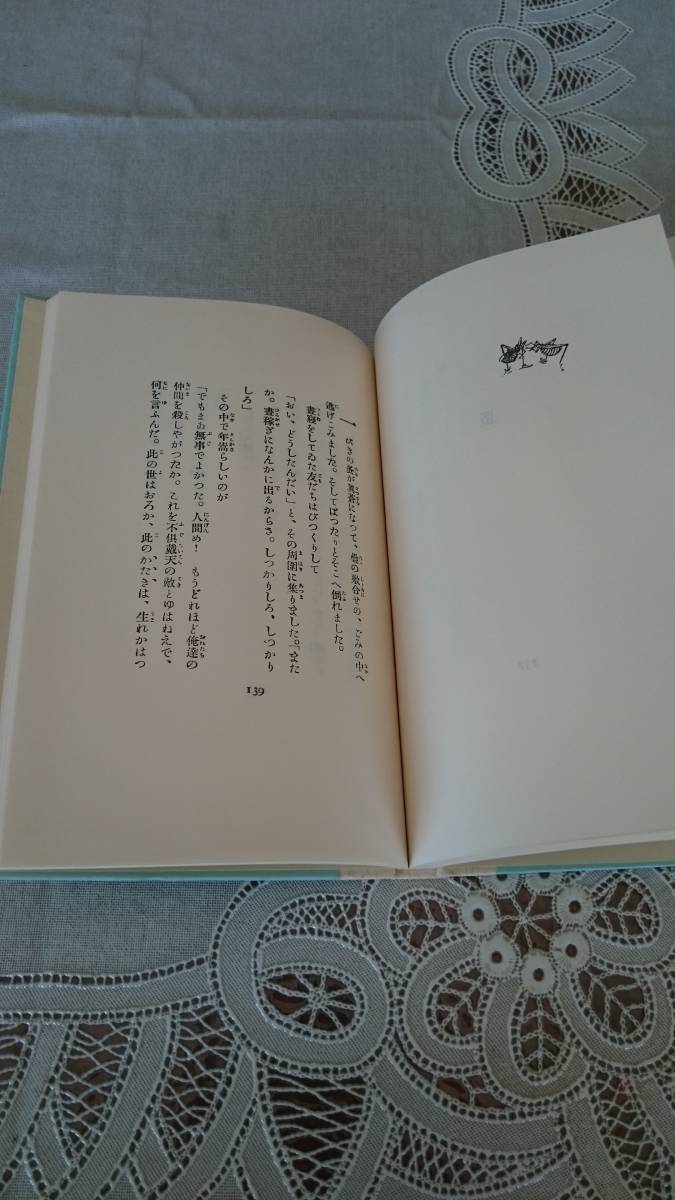 一ぴきの蚤が眞蒼になつて、疊の敷合せの、ごみの中へ
逃げこみました。そしてぱつたりとそこへ倒れました。
晝寢をしてゐた友だちはびつくりして
「おい、どうしたんだい」と、その周圍に集りました。「また
か。晝稼ぎになんかに出るからさ。しつかりしろ、しつかり
しろ」
その中で年嵩らしいのが
「でもまあ無事でよかつた。人間め！　もうどれほど俺達の
仲間を殺しやがつたか。これを不倶戴天の敵とゆはねえで、
何を言ふんだ。此の世はおろか、此のかたきは、生れかはつ
139